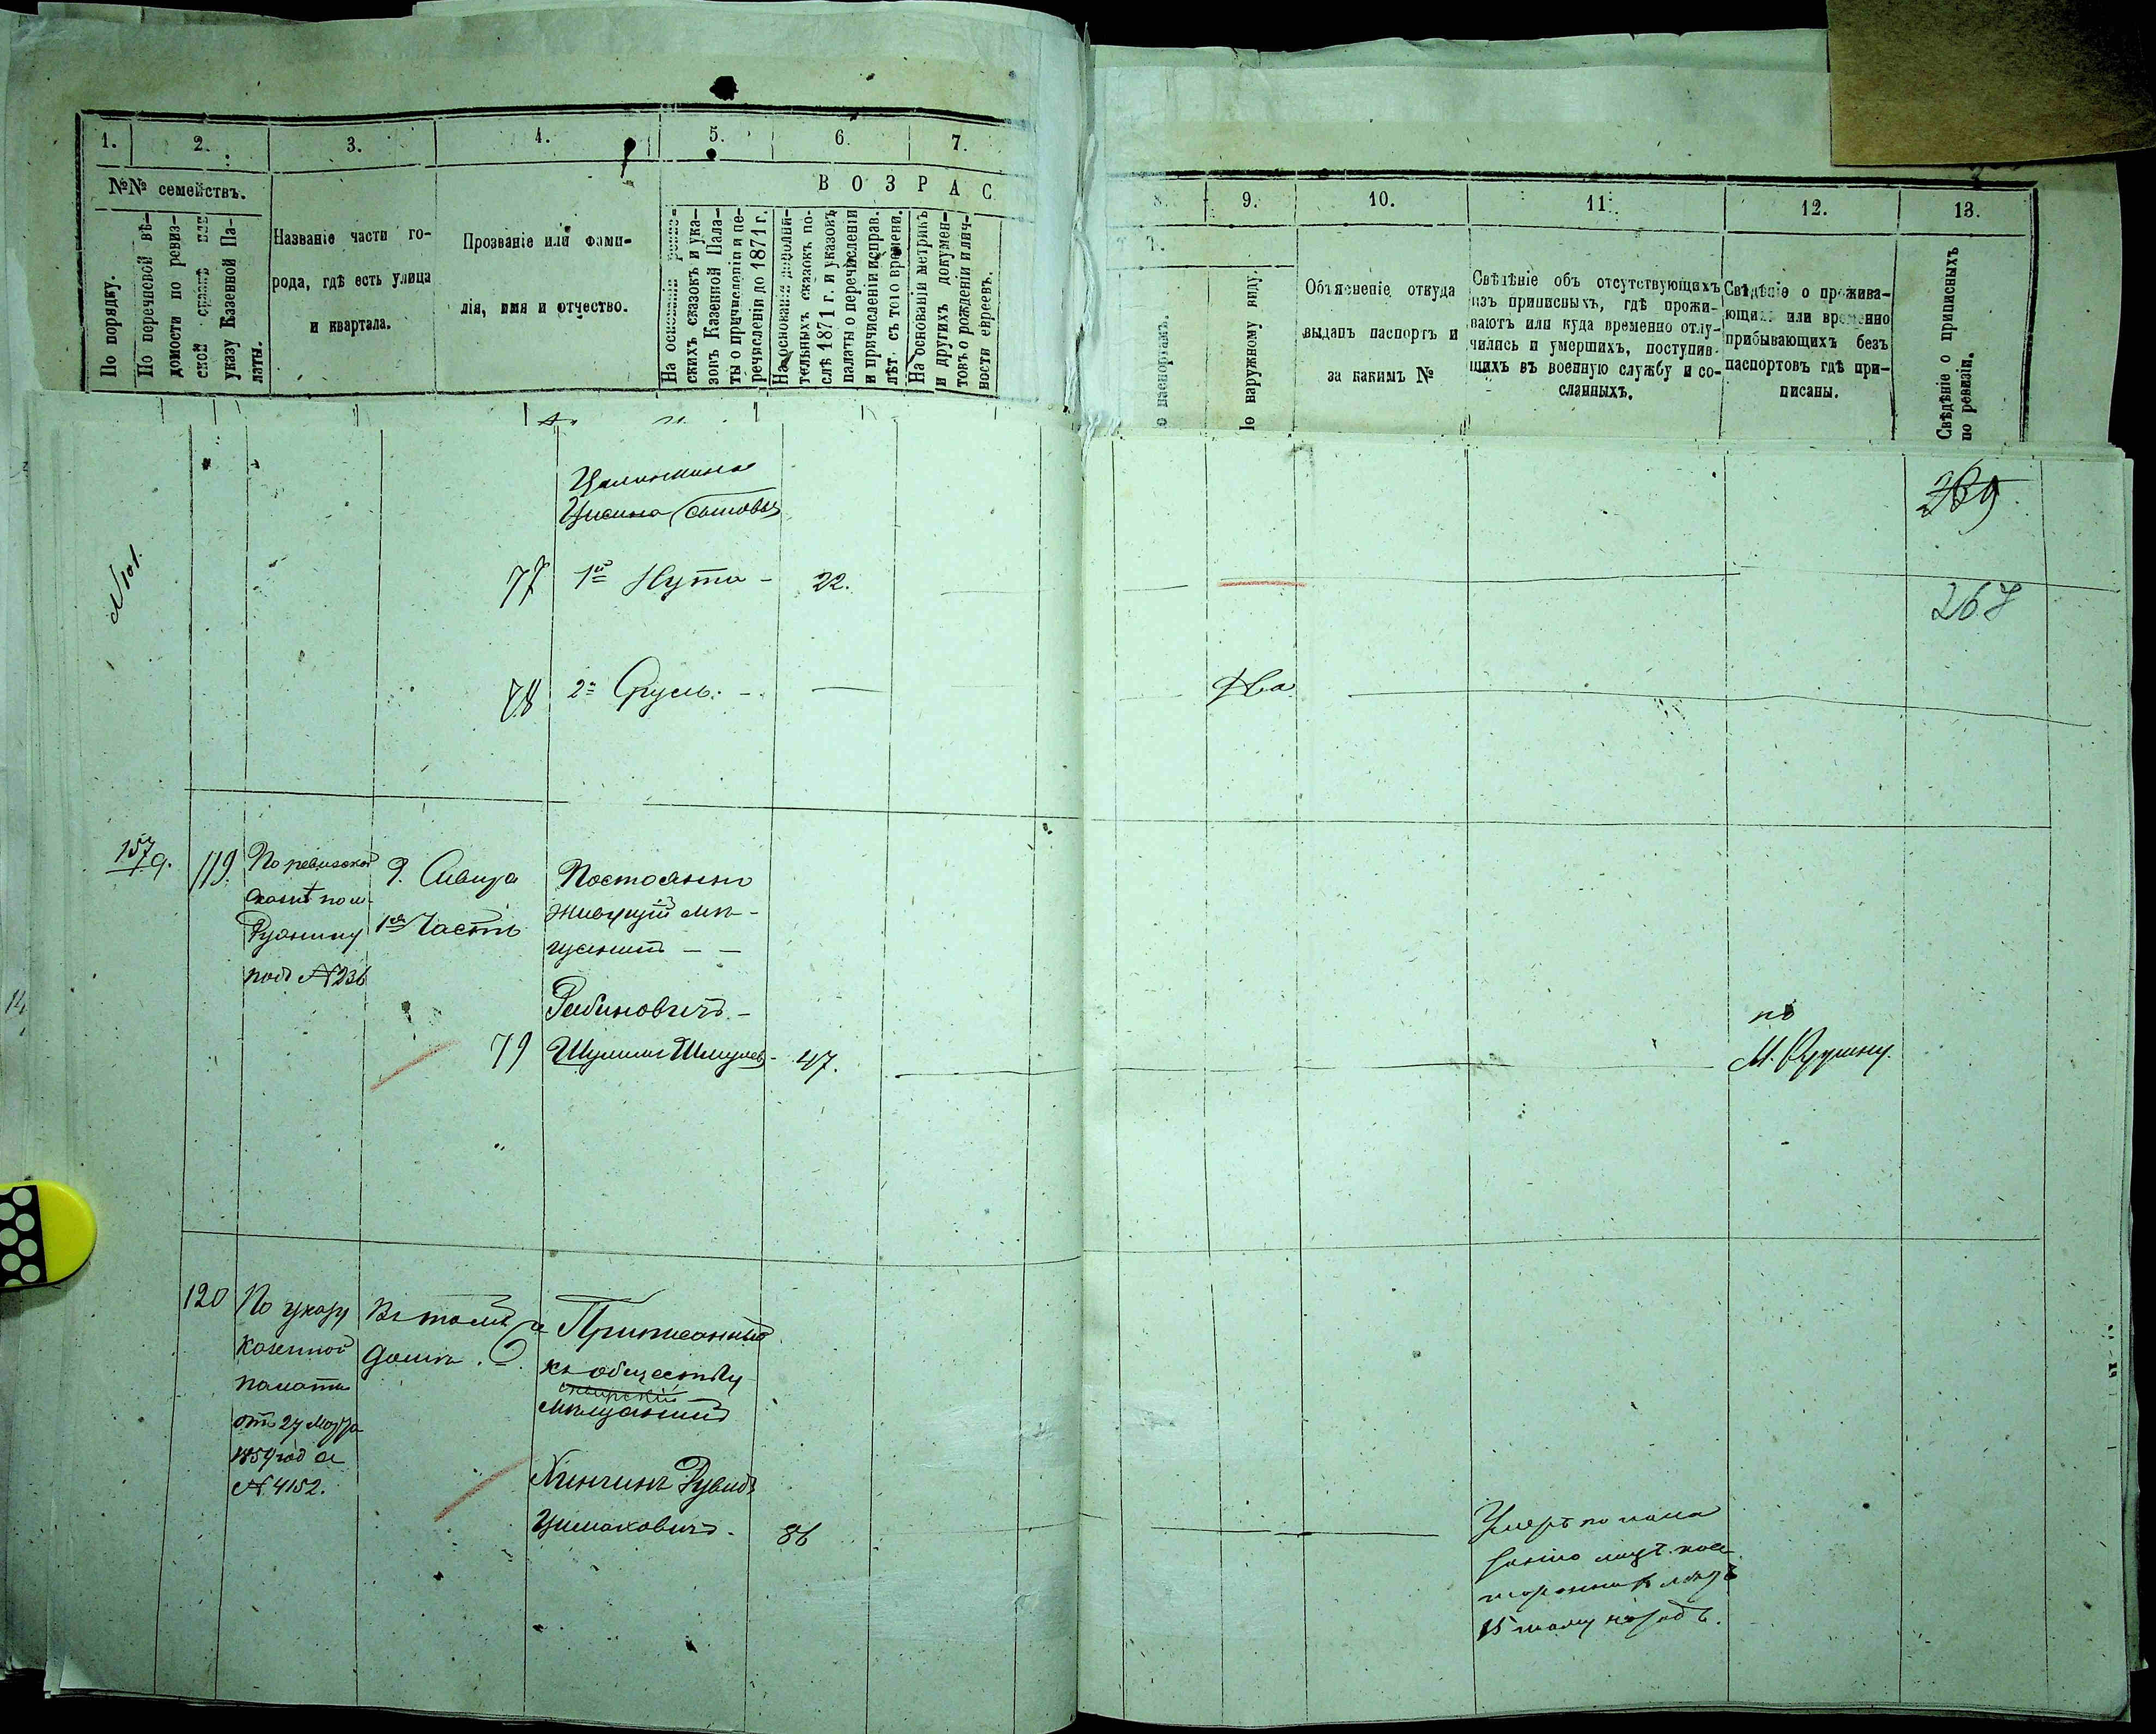 1. 2. 3. 4. 5. 6. 7.
№№ семействъ.
По порядку.
По перечневой вѣ-
домости по ревиз-
ской сказкѣ или
указу Казенной Па-
латы.
Названіе части го-
рода, гдѣ есть улица
и квартала.
Прозваніе или фами-
лія, имя и отчество.
В О З Р А С
На основаніи ревиз-
скихъ сказокъ и ука-
зовъ Казенной Пала-
ты о причисленіи и пе-
речисленіи до 1871 г.
На основаніи дополни-
тельныхъ сказокъ по-
слѣ 1871 г. и указовъ
палаты о перечисленіи
и причисленіи исправ.
лѣт. съ того времени.
На основаніи метрикъ
и другихъ докумен-
товъ о рожденіи и лич-
ности евреевъ.
8. 9. 10. 11. 12. 13.
Т.
о паспортамъ.
По наружному виду.
Объясненіе откуда
выданъ паспортъ и
за какимъ №
Свѣдѣніе объ отсутствующихъ
изъ приписныхъ, гдѣ прожи-
ваютъ или куда временно отлу-
чились и умершихъ, поступив-
шихъ въ военную службу и со-
сланныхъ.
Свѣдѣніе о прожива-
ющихъ или временно
прибывающихъ безъ
паспортовъ гдѣ при-
писаны.
Свѣдѣніе о приписныхъ
по ревизіи.
сыновья
N 101.
77 1й Нута - 22.
267
78 2й Сруль. -
157/9. 119. По ревизской
сказкѣ пом.
Ружину
подъ N 236
Г. Сквира
1ая Часть
Постоянно
живущій мѣ-
щанинъ - -
Рабиновичъ -
79 Шулим Шмулев - 47.
по
М. Ружину.
120 По указу
казенной
палаты
отъ 27 Марта
N. 4152.
Въ томъ же
домѣ.
Приписанный
къ обществу
сквирскій
мѣщанинъ
Хинчинъ Рувинъ
Ицкаковичъ - 86
Умеръ по пока
занію
15 тому назадъ.